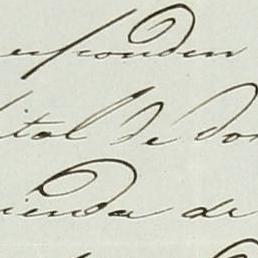 esponden
ital de don
ienda de